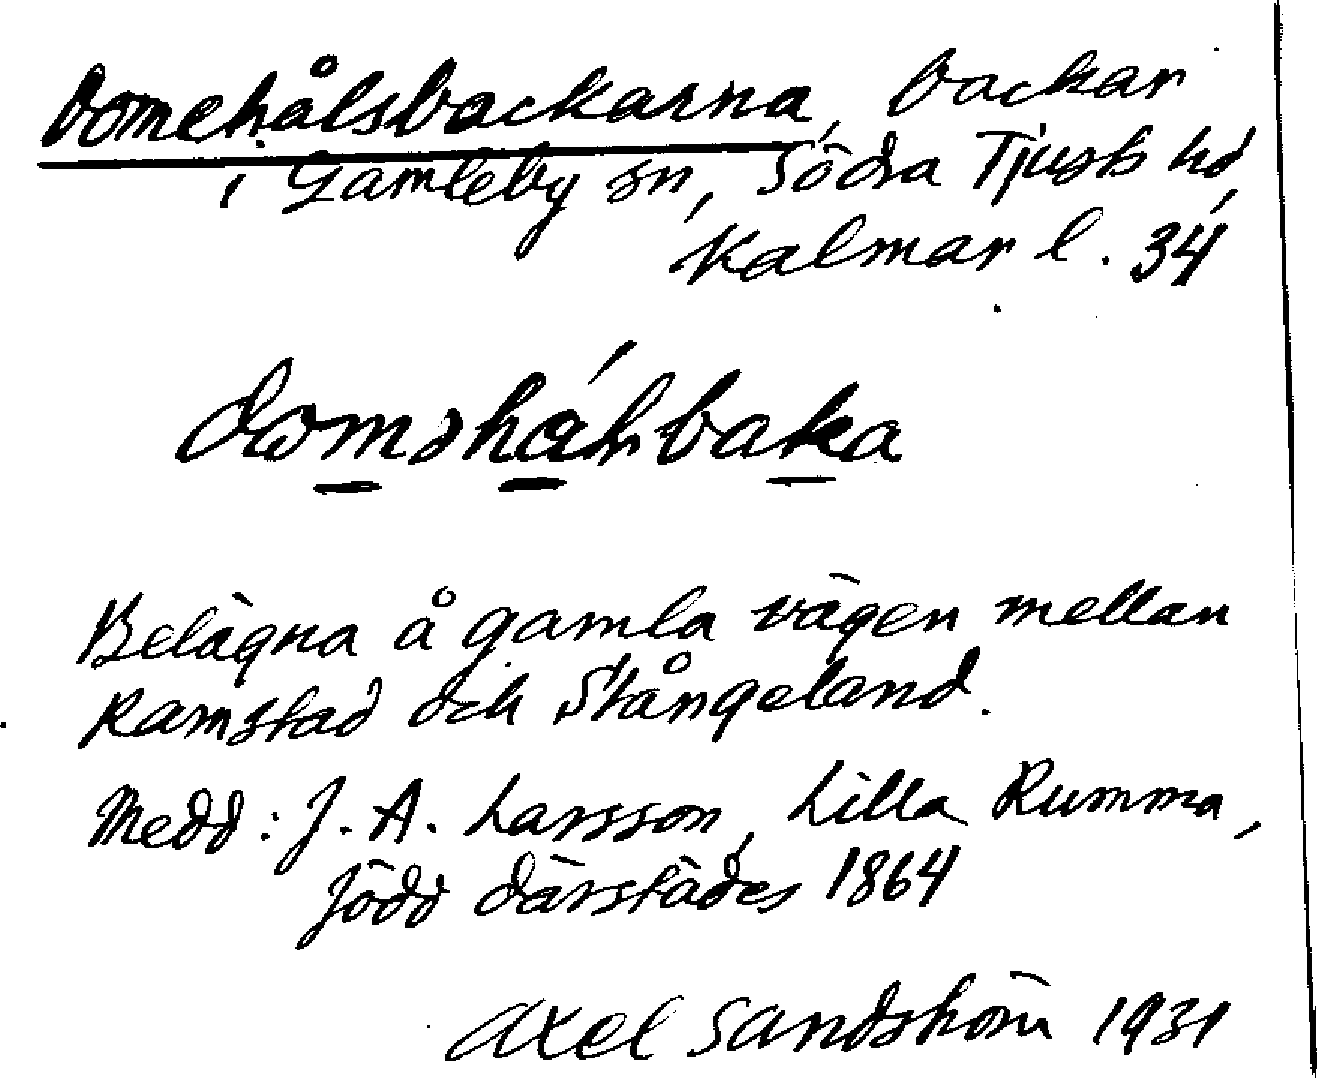 Domehålsbackarna, backar
i Gamleby sn, Södra Tjusts hd,
Kalmar l. 34
Belägna å gamla vägen mellan
Ramstad och Stångeland.
Medd: J. A. Larsson, Lilla Rumma,
född därstädes 1864
Axel Sandström 1931